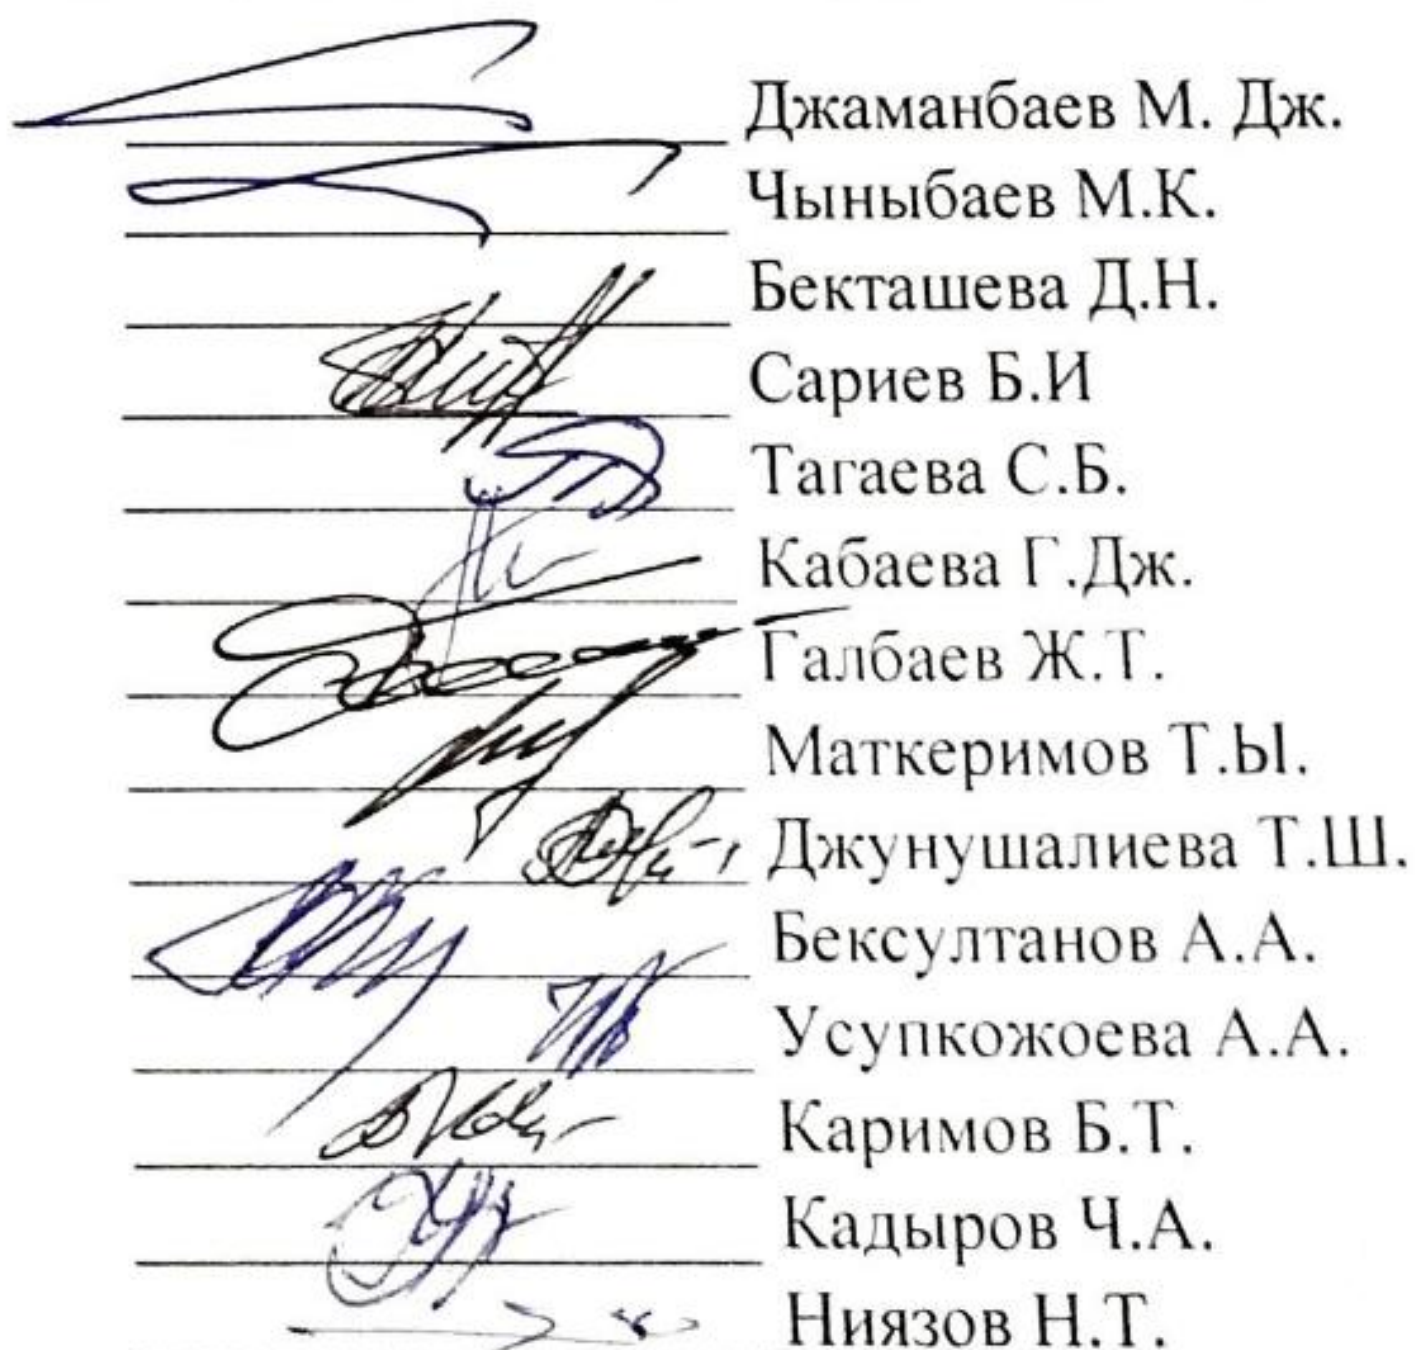 Джаманбаев М. Дж.
Чыныбаев М.К.
Бекташева Д.Н.
Сариев Б.И
Тагаева С.Б.
Кабаева Г.Дж.
Галбаев Ж.Т.
Маткеримов Т.Ы.
Джунушалиева Т.Ш.
Бексултанов А.А.
Усупкожоева А.А.
Каримов Б.Т.
Кадыров Ч.А.
Ниязов Н.Т.